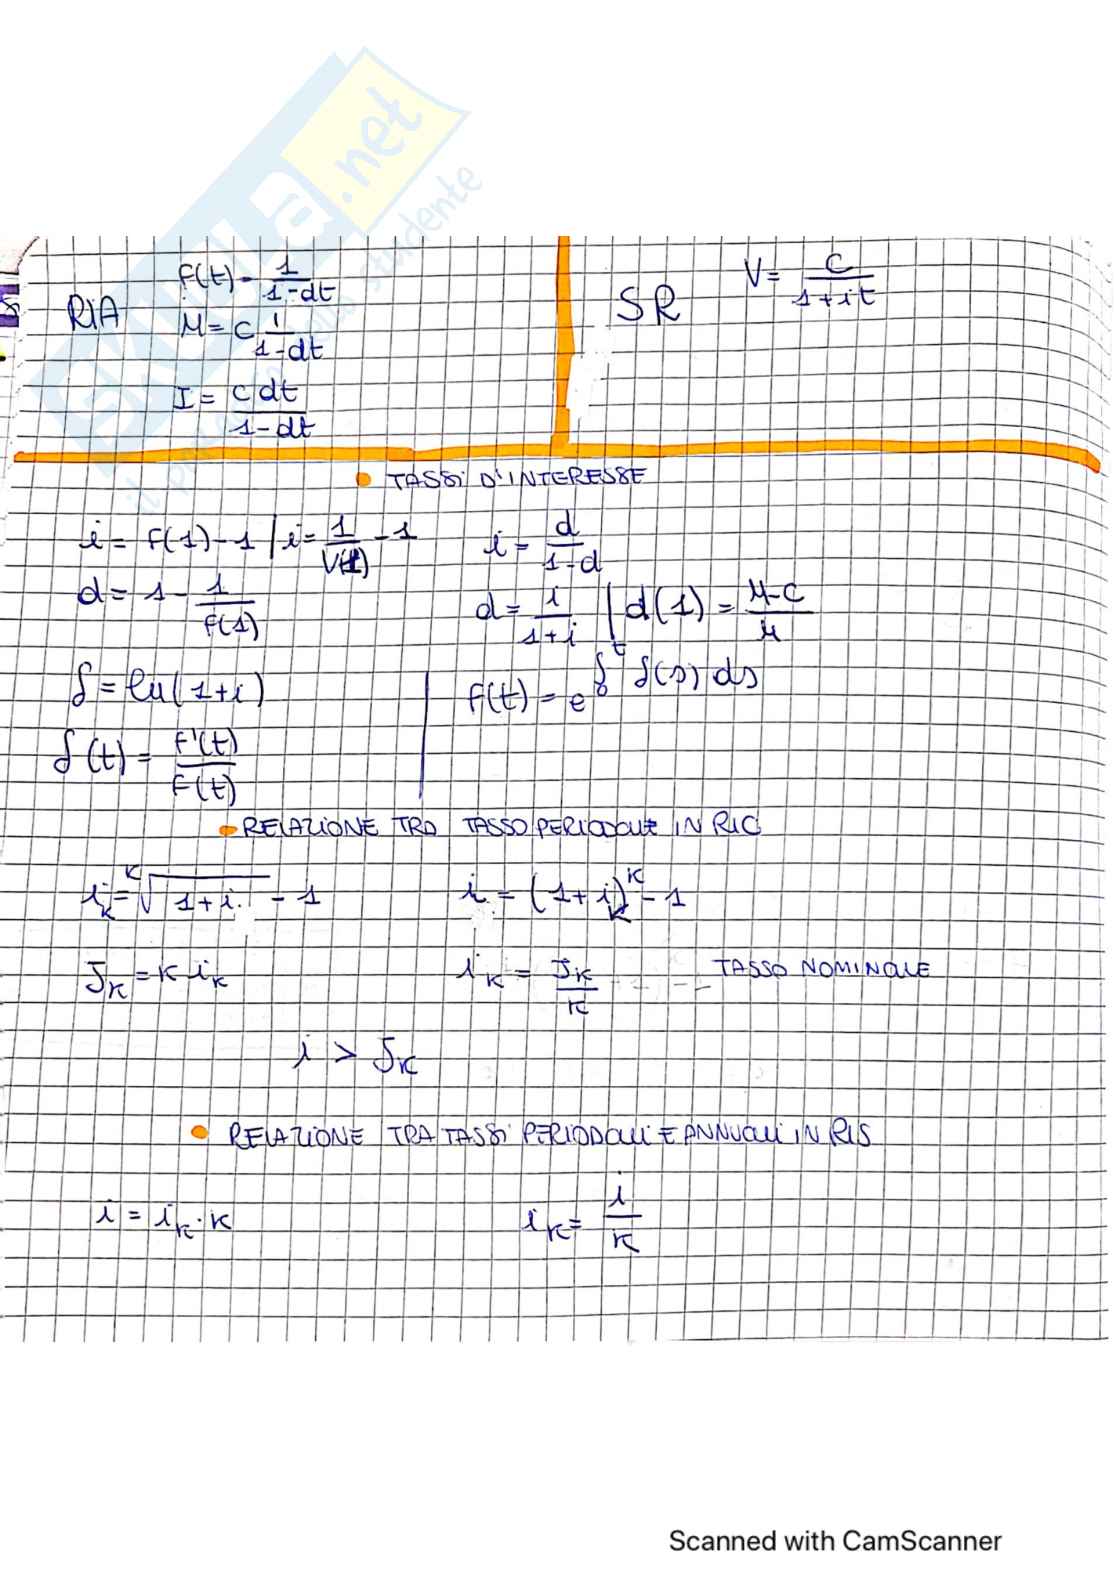 SKUOLA.net
il paradiso dello studente
RIA
F(t) = 1/(1-dt)
M = C 1/(1-dt)
I = Cdt/(1-dt)
SR
V = C/(1+it)
TASSI D'INTERESSE
i = F(1) - 1 | i = 1/V(1) - 1
i = d/(1-d)
d = 1 - 1/F(1)
d = i/(1+i) | d(1) = (M-C)/M
δ = ln(1+i)
F(t) = e^∫₀ᵗ δ(s) ds
δ(t) = F'(t)/F(t)
RELAZIONE TRA TASSO PERIODALE IN RIC
iₖ = ᵏ√(1+i) - 1
i = (1+iₖ)ᵏ - 1
Jₖ = K iₖ
iₖ = Jₖ/K
TASSO NOMINALE
i > Jₖ
RELAZIONE TRA TASSI PERIODALI E ANNUALI IN RIS
i = iₖ · K
iₖ = i/K
Scanned with CamScanner